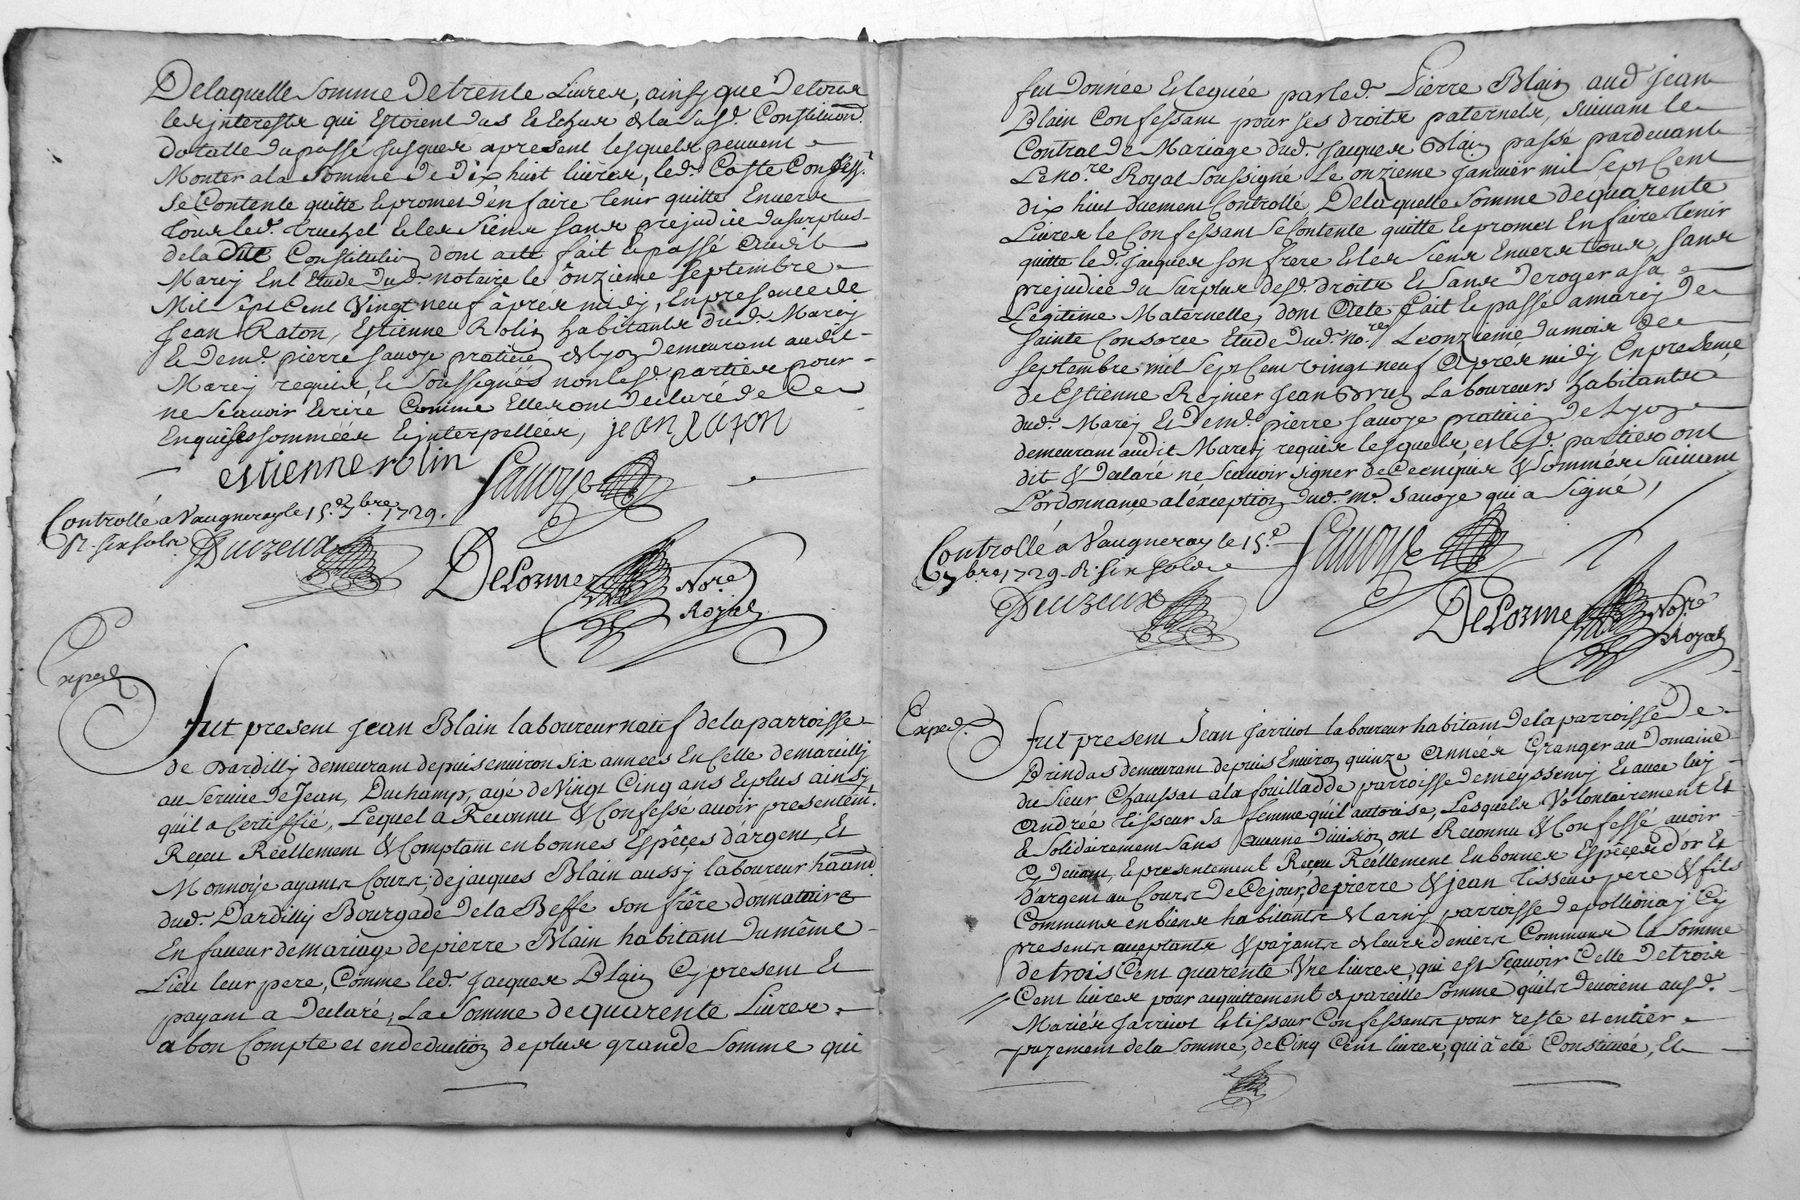 Delaquelle somme De trente Livres, ainsy que De tous
les interests qui Estoient dus Et Echus de la susd. Constitution
dotalle du passé jusques apresent lesquels peuvent
Monter a la somme de Dix huit livres, led. Coste Confess.t
se Contente quitte et promet d'en faire tenir quitte Envers
tous led. truchet et les siens sans prejudice du surplus
de la dite Constitution dont acte fait et passé audit
Marcy En l'Etude dud. notaire le onzieme septembre
Mil sept Cent Vingt neuf après midy, En presence de
Jean Raton, Estienne Rolin habitants dud. Marcy
Et de md. pierre savoye praticien de lyon demeurant audit
Marcy requis, et soussignés non les d. parties pour
ne scavoir Ecrire Comme Elles ont declaré de Ce
Enquises sommées et interpellées, jean raton
estienne rolin Savoye
Controllé a Vaugneray le 15.e 7bre 1729.
R. six sols Deuzeux
DeLorme No.re
Royal
Exped.
Fut present Jean Blain laboureur natif de la parroisse
de Dardilly demeurant depuis environ six années En Celle de marcilly
au service de Jean Duchamp, agé de Vingt Cinq ans Et plus ainsy
qu'il a Certiffié, Lequel a Reconnu & Confessé avoir presentem.t
Receu Réellement & Comptant en bonnes Espêces d'argent, Et
Monnoye ayants Cours; de jacques Blain aussy laboureur habitand.
dud. Dardilly Bourgade de la Beffe son frêre donnataire
En faveur de mariage de pierre Blain habitant du même
Lieu leur pere, Comme led. Jacques Blain Cy present Et
payant a declaré, La Somme de quarente Livres
a bon Compte et en deduction de plus grande somme qui
fut donnée et leguée par led. Pierre Blain aud. Jean
Blain Confessant pour ses droits paternels, suivant le
Contrat de Mariage dud. Jacques Blain passé pardevant
Le no.re Royal soussigné Le onzieme Janvier mil sept Cent
dix huit duement Controllé, De la quelle somme de quarente
Livres le Confessant se Contente quitte et promet En faire tenir
quitte led. Jacques son frere et les siens Envers tous, sans
prejudice du surplus desd. droits Et sans deroger a sa
Legitime Maternelle, dont Acte fait et passé a marcy de
sainte Consorce Etude dud. no.re Le onzieme du mois de
septembre mil sept Cent vingt neuf Apres midy En presence
de Estienne Reynier Jean Brun Laboureurs habitants
dud. Marcy Et de md. pierre savoye praticien de Lyon
demeurant audit Marcy requis lesquels, et les d. parties ont
dit & declaré ne scavoir signer de Ce enquis & sommés suivant
L'ordonnance a l'exception dud. m.e savoye qui a signé,
Controllé a Vaugneray le 15.e Savoye
7bre 1729. R. six sols
Deuzeux
DeLorme No.re
Royal
Exped.
Fut present Jean Jarricot laboureur habitant de la parroisse de
Brindas demeurant depuis Environ quinze Années Granger au Domaine
du sieur Chaussat a la fouilladde parroisse de meyssemy Et avec luy
Andrée Tisseur sa femme qu'il autorise, Lesquels Volontairement Et
Et solidairement sans aucune division ont Reconnu & Confessé avoir
Cy devant, et presentement Receu Réellement En bonnes Espêces d'or Et
d'argent au Cours de Ce jour, de pierre & jean tisseur pere & fils
Communs en biens habitants Marny parroisse de pollionay Cy
presents acceptants & payants de leurs deniers Communs la somme
de trois Cent quarente Une livres, qui est scavoir Celle de trois
Cent livres pour acquittement de pareille somme qu'ils devoient ausd.
Mariés Jarricot Et tisseur Confessants pour reste et entier
payement de la somme, de Cinq Cent livres, qui a été Constituée, Et